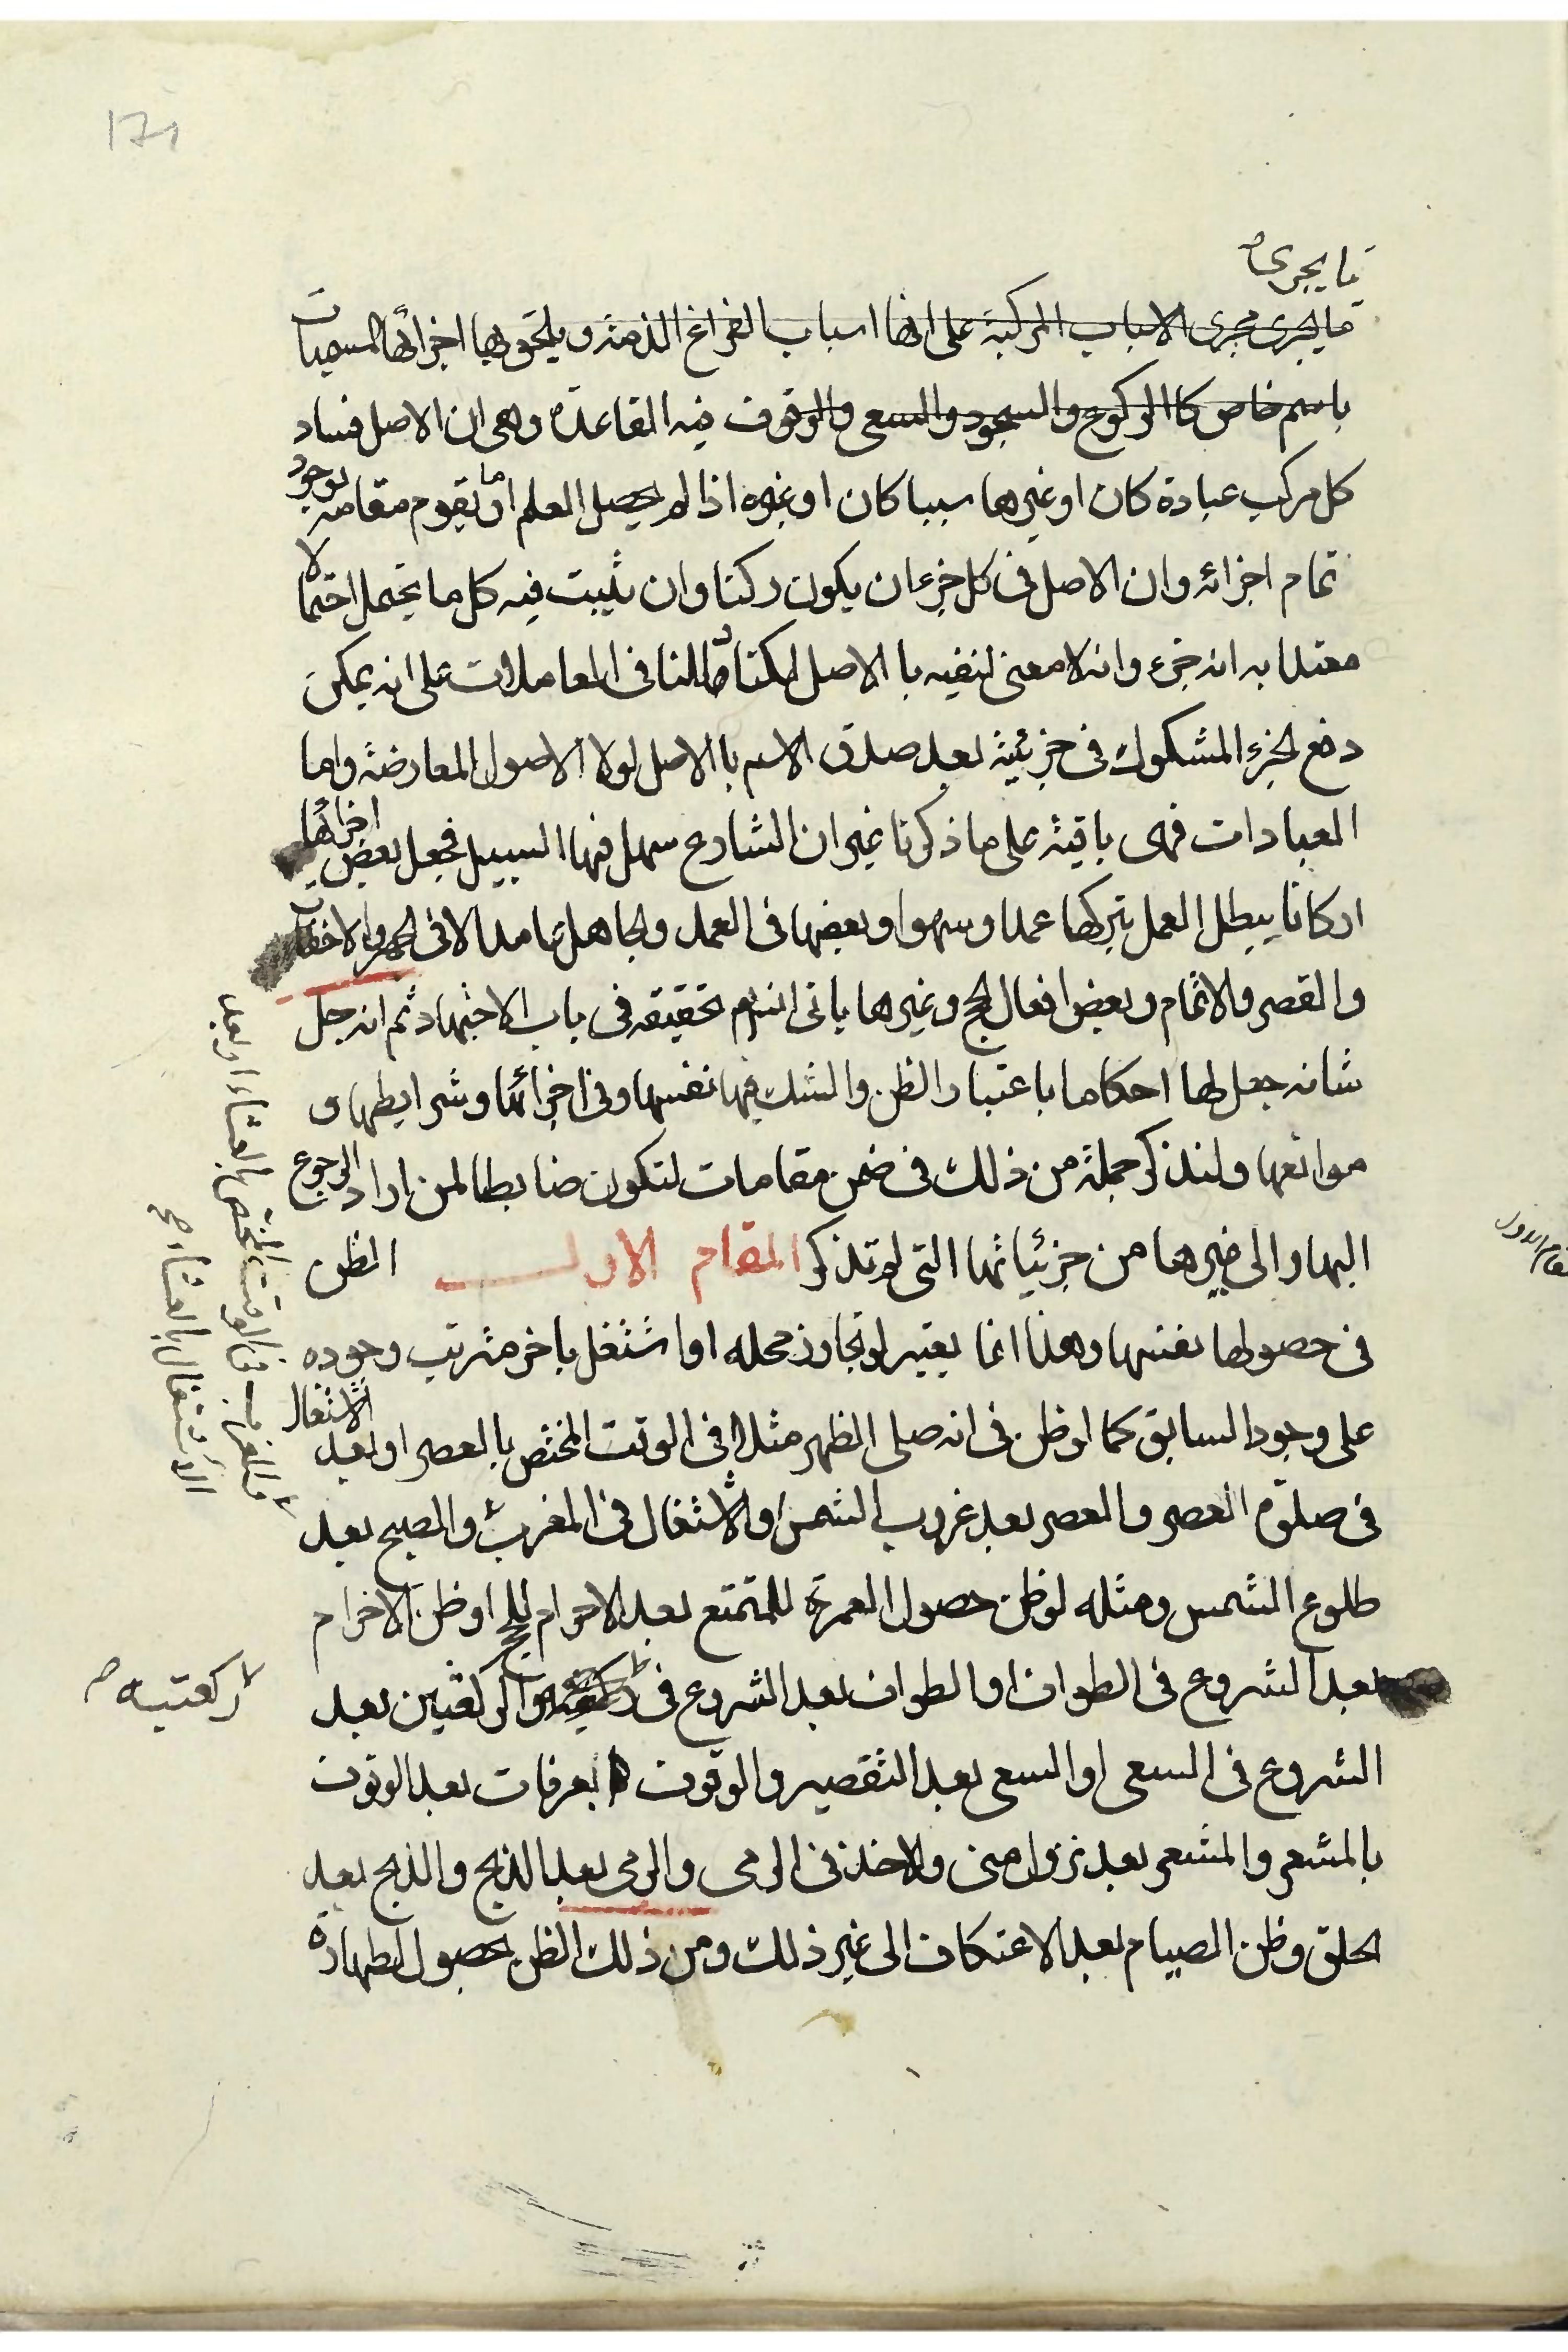 171
ما يجرى
ما يجرى مجرى الاسباب المركبة على انها اسباب الفراغ الذمة ويلحق بها اجزائها المسميات
باسم خاص كالركوع والسجود والسعى والوقوف فيه القاعدة وهى ان الاصل فساد
كل مركب عبادة كان او غيرها سببا كان او غيره اذا لم يحصل العلم او ما يقوم مقامه بوجود
تمام اجزائه وان الاصل فى كل جزء ان يكون ركنا وان يثبت فيه كل ما يحتمل احتمالا
معتدا به انه جزء وانه لا معنى لنفيه بالاصل لكنا قد قلنا فى المعاملات على انه يمكن
دفع الجزء المشكوك فى جزئيته بعد صدق الاسم بالاصل لولا الاصول المعارضة واما
العبادات فهى باقية على ما ذكرنا غير ان الشارع سهل فيها السبيل فجعل بعض اجزائها
اركانا يبطل العمل بتركها عمدا وسهوا وبعضها فى العمد والجاهل عامدا الا فى الجهر والاخفات
والقصر والاتمام وبعض افعال الحج وغيرها ياتى انشاء تحقيقه فى باب الاجتهاد ثم انه جل
شانه جعل لها احكاما باعتبار الظن والشك فيها نفسها وفى اجزائها وشرايطها و
موانعها ولنذكر جملة من ذلك فى ضمن مقامات لتكون ضابطا لمن اراد الرجوع
اليها والى غيرها من جزئياتها التى لم تذكر المقام الاول الظن
فى حصولها نفسها وهذا انما يعتبر لو تجاوز محله او اشتغل باخر مترتب وجوده
على وجود السابق كما لو ظن فى انه صلى الظهر مثلا فى الوقت المختص بالعصر او بعد الاشتغال
فى صلوة العصر والعصر بعد غروب الشمس والاشتغال فى المغرب والصبح بعد
طلوع الشمس ومثله لو ظن حصول العمرة للمتمتع بعد الاحرام للحج او ظن الاحرام
بعد الشروع فى الطواف او الطواف بعد الشروع فى والركعتين بعد
الشروع فى السعى او السعى بعد التقصير والوقوف بعرفات بعد الوقوف
بالمشعر والمشعر بعد نزول منى والاخذ فى الرمى والرمى بعد الذبح والذبح بعد
الحلق وظن الصيام بعد الاعتكاف الى غير ذلك ومن ذلك الظن بحصول الطهارة
والمغرب فى الوقت المختص بالعشاء او بعد
الاشتغال بالعشاء صح
ركعتيه
المقام الاول